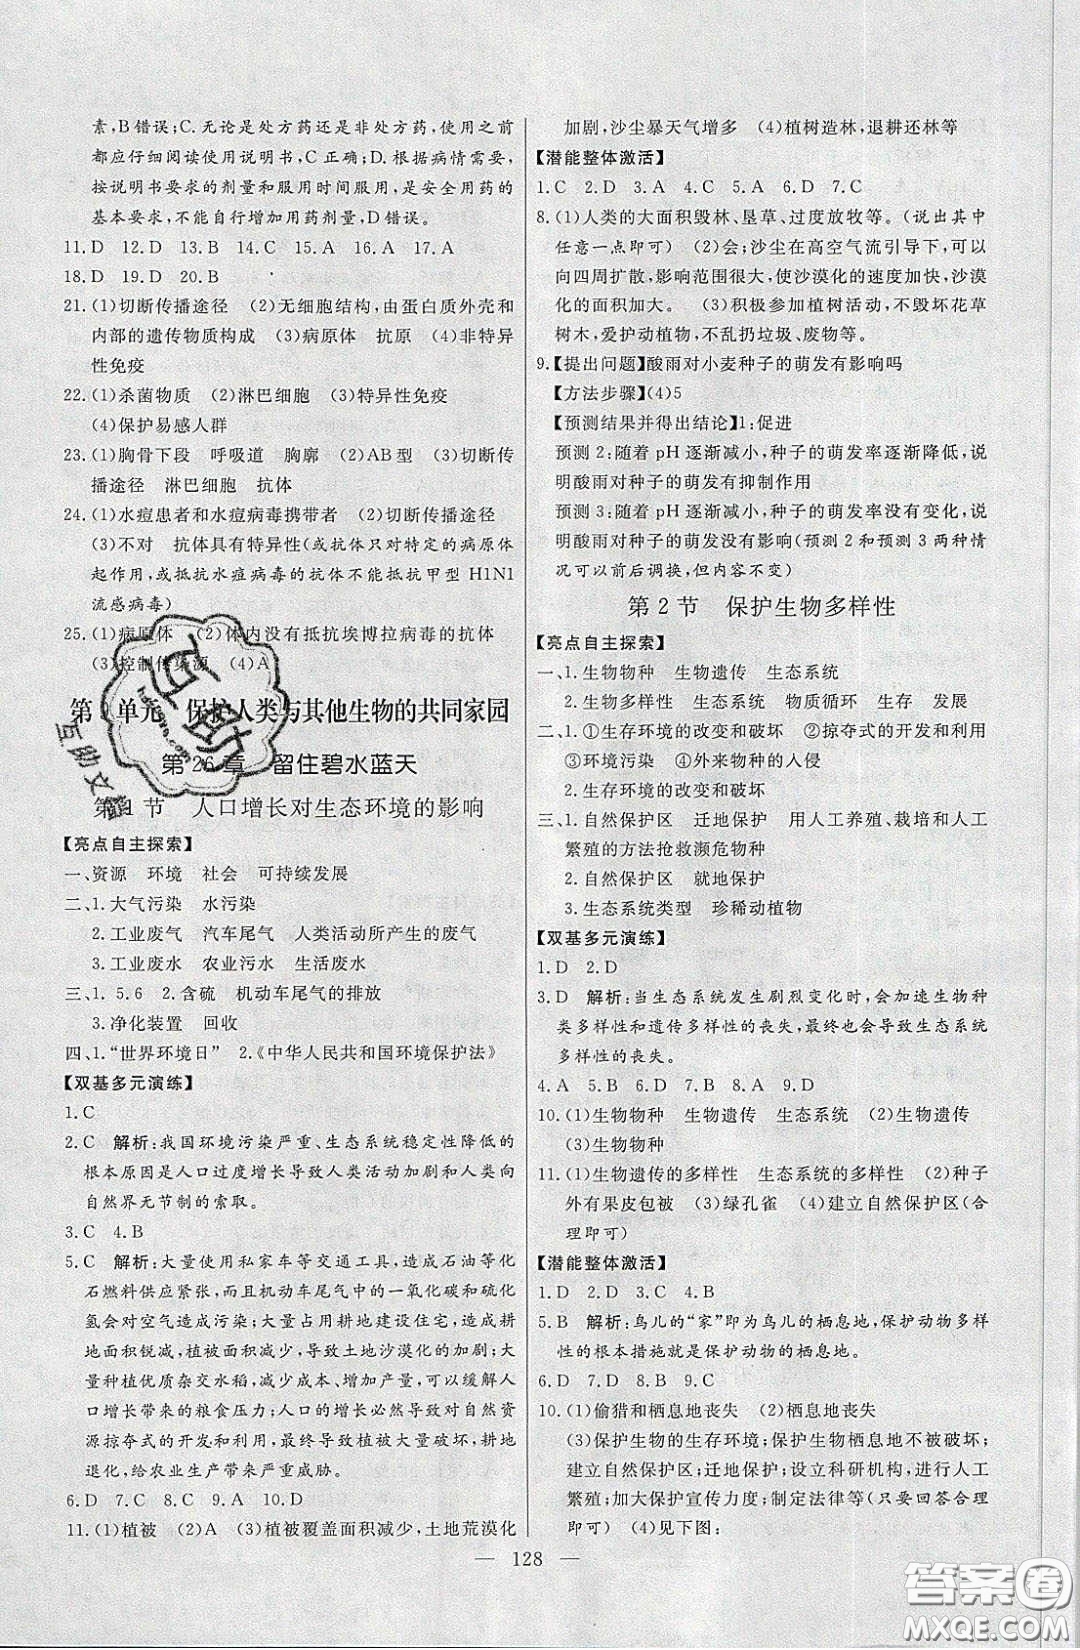 素,B错误;C.无论是处方药还是非处方药,使用之前
都应仔细阅读使用说明书,C正确;D.根据病情需要,
按说明书要求的剂量和服用时间服用,是安全用药的
基本要求,不能自行增加用药剂量,D错误。
11.D 12.D 13.B 14.C 15.A 16.A 17.A
18.D 19.D 20.B
21.(1)切断传播途径 (2)无细胞结构,由蛋白质外壳和
内部的遗传物质构成 (3)病原体 抗原 (4)非特异
性免疫
22.(1)杀菌物质 (2)淋巴细胞 (3)特异性免疫
(4)保护易感人群
23.(1)胸骨下段 呼吸道 胸廓 (2)AB型 (3)切断传
播途径 淋巴细胞 抗体
24.(1)水痘患者和水痘病毒携带者 (2)切断传播途径
(3)不对 抗体具有特异性(或抗体只对特定的病原体
起作用,或抵抗水痘病毒的抗体不能抵抗甲型H1N1
流感病毒)
25.(1)病原体 (2)体内没有抵抗埃博拉病毒的抗体
(3)控制传染源 (4)A
第 单元 保护人类与其他生物的共同家园
第26章 留住碧水蓝天
第1节 人口增长对生态环境的影响
【亮点自主探索】
一、资源 环境 社会 可持续发展
二、1.大气污染 水污染
2.工业废气 汽车尾气 人类活动所产生的废气
3.工业废水 农业污水 生活废水
三、1.5.6 2.含硫 机动车尾气的排放
3.净化装置 回收
四、1.“世界环境日” 2.《中华人民共和国环境保护法》
【双基多元演练】
1.C
2.C 解析:我国环境污染严重、生态系统稳定性降低的
根本原因是人口过度增长导致人类活动加剧和人类向
自然界无节制的索取。
3.C 4.B
5.C 解析:大量使用私家车等交通工具,造成石油等化
石燃料供应紧张,而且机动车尾气中的一氧化碳和硫化
氢会对空气造成污染;大量占用耕地建设住宅,造成耕
地面积锐减,植被面积减少,导致土地沙漠化的加剧;大
量种植高质量杂交水稻,减少成本,增加产量,可以缓解人
口增长带来的粮食压力;人口的增长必然导致对自然资
源掠夺式的开发和利用,最终导致植被大量破坏,耕地
退化,给农业生产带来严重威胁。
6.D 7.C 8.C 9.A 10.D
11.(1)植被 (2)A (3)植被覆盖面积减少,土地荒漠化
加剧,沙尘暴天气增多 (4)植树造林,退耕还林等
【潜能整体激活】
1.C 2.D 3.A 4.C 5.A 6.D 7.C
8.(1)人类的大面积毁林、垦草、过度放牧等。(说出其中
任意一点即可) (2)会;沙尘在高空气流引导下,可以
向四周扩散,影响范围很大,使沙漠化的速度加快,沙漠
化的面积加大。 (3)积极参加植树活动,不毁坏花草
树木,爱护动植物,不乱扔垃圾、废物等。
9.【提出问题】酸雨对小麦种子的萌发有影响吗
【方法步骤】(4)5
【预测结果并得出结论】1:促进
预测2:随着pH逐渐减小,种子的萌发率逐渐降低,说
明酸雨对种子的萌发有抑制作用
预测3:随着pH逐渐减小,种子的萌发率没有变化,说
明酸雨对种子的萌发没有影响(预测2和预测3两种情
况可以前后调换,但内容不变)
第2节 保护生物多样性
【亮点自主探索】
一、1.生物物种 生物遗传 生态系统
2.生物多样性 生态系统 物质循环 生存 发展
二、1.①生存环境的改变和破坏 ②掠夺式的开发和利用
③环境污染 ④外来物种的入侵
2.生存环境的改变和破坏
三、1.自然保护区 迁地保护 用人工养殖、栽培和人工
繁殖的方法抢救濒危物种
2.自然保护区 就地保护
3.生态系统类型 珍稀动植物
【双基多元演练】
1.D 2.D
3.D 解析:当生态系统发生剧烈变化时,会加速生物种
类多样性和遗传多样性的丧失,最终也会导致生态系统
多样性的丧失。
4.A 5.B 6.D 7.B 8.A 9.D
10.(1)生物物种 生物遗传 生态系统 (2)生物遗传
(3)生物物种
11.(1)生物遗传的多样性 生态系统的多样性 (2)种子
外有果皮包被 (3)绿孔雀 (4)建立自然保护区(合
理即可)
【潜能整体激活】
1.D 2.D 3.C 4.B
5.B 解析:鸟儿的“家”即为鸟儿的栖息地,保护动物多样
性的根本措施就是保护动物的栖息地。
6.D 7.D 8.B 9.C
10.(1)偷猎和栖息地丧失 (2)栖息地丧失
(3)保护生物的生存环境;保护生物栖息地不被破坏;
建立自然保护区;迁地保护;设立科研机构,进行人工
繁殖;加大保护宣传力度;制定法律等(只要回答合理
即可) (4)见下图:
— 128 —
互助文
答案圈
MXQE.COM